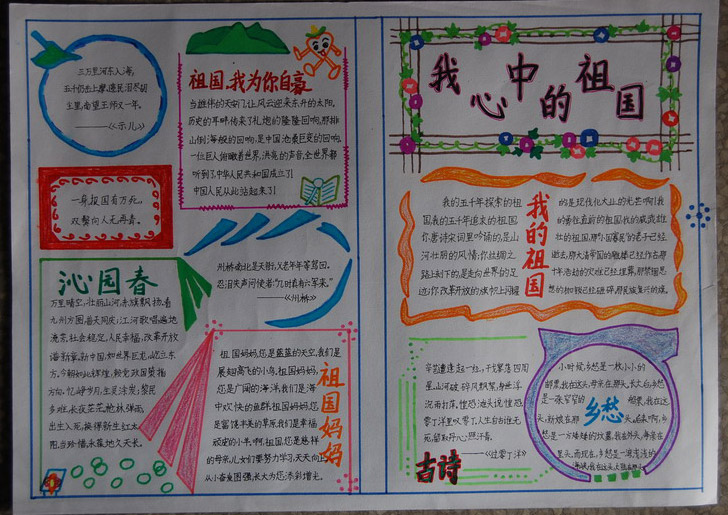 三万里河东入海,
五千仞岳上摩
遗民泪尽胡
南望王师又一年。
——《示儿》
祖国,我为你自豪
当雄伟的天安门,让风云迎来东升的太阳,
历史的耳畔,传来了礼炮的隆隆回响,那排
山倒海般的回响,是中国沧桑巨变的回响
一位巨人俯瞰着世界,洪亮的声音,全世界都
听到了,中华人民共和国成立了!
中国人民从此站起来了!
一身报国有万死,
双鬓向人无再青。
州桥南北是天街,父老年年等驾回。
忍泪失声问使者:“几时真有六军来。”
——《州桥》
沁园春
万里晴空,壮丽山河,赤旗飘扬。看
九州方圆,普天同庆;江河歌唱,遍地
流芳。社会稳定,人民幸福,改革开放
谱新章。新中国,如世界巨龙,屹立东
方。
忆峥嵘岁月,生灵涂炭;黎民
多难,长夜茫茫。枪林弹雨,
出生入死,换得新生红太
阳。当珍惜,永葆地久天长。
祖国妈妈
祖国妈妈,您是蓝蓝的天空,我们是
展翅高飞的小鸟。祖国妈妈,
您是广阔的海洋,我们是海
中欢快的鱼群。祖国妈妈,您
是富饶丰美的草原,我们是幸福
顽皮的小羊。啊,祖国,您是慈祥
的母亲,儿女们要努力学习,天天向上,
从小奋发图强,长大为您添彩增光。
我心中的祖国
我的祖国
我的五千年探索的祖
国我的五千年追求的祖国,
你唐诗宋词里吟诵的,是山
河壮丽的风情;你丝绸之
路上刻下的,是走向世界的足
迹;你改革开放的
的是现代化大业的光芒啊!我
壮的祖国,
逝去,
年
想的
古诗
辛苦遭逢起一经,干戈寥落四周
星。山河破碎风飘絮,身世浮
沉雨打萍。惶恐滩头说惶恐,
零丁洋里叹零丁。人生自古谁无
死,留取丹心照汗青。
——《过零丁洋》
乡愁
小时候,乡愁是一枚小小的
邮票,我在这头,母亲在那头。长大后,乡愁
是一张窄窄的船票,我在这
头,新娘在那头。后来啊!乡
愁是一方矮矮的坟墓,我在外头,母亲在
里头。而现在,乡愁是一湾浅浅的
海峡,我在这头,大陆在那头